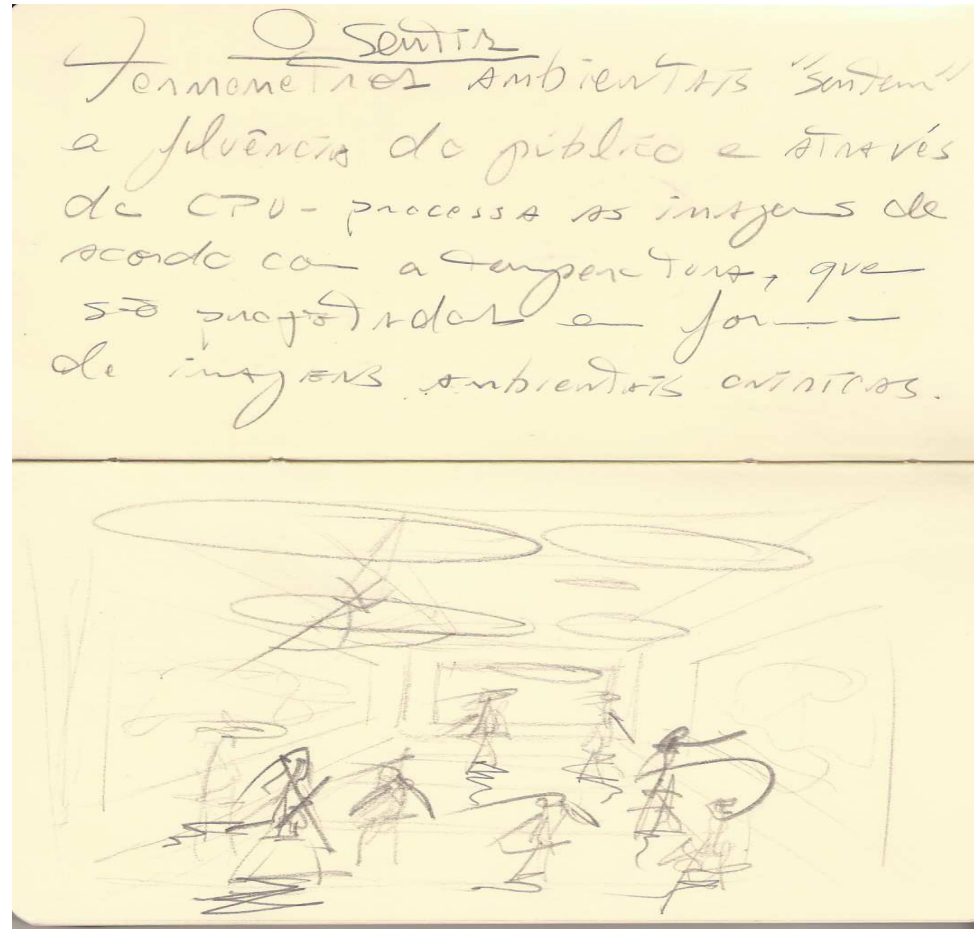 O Sentir
Termometros Ambientais "sentem"
a fluência do público e através
da CPU - processa as imagens de
acordo com a temperatura, que
são projetadas em forma
de imagens ambientais